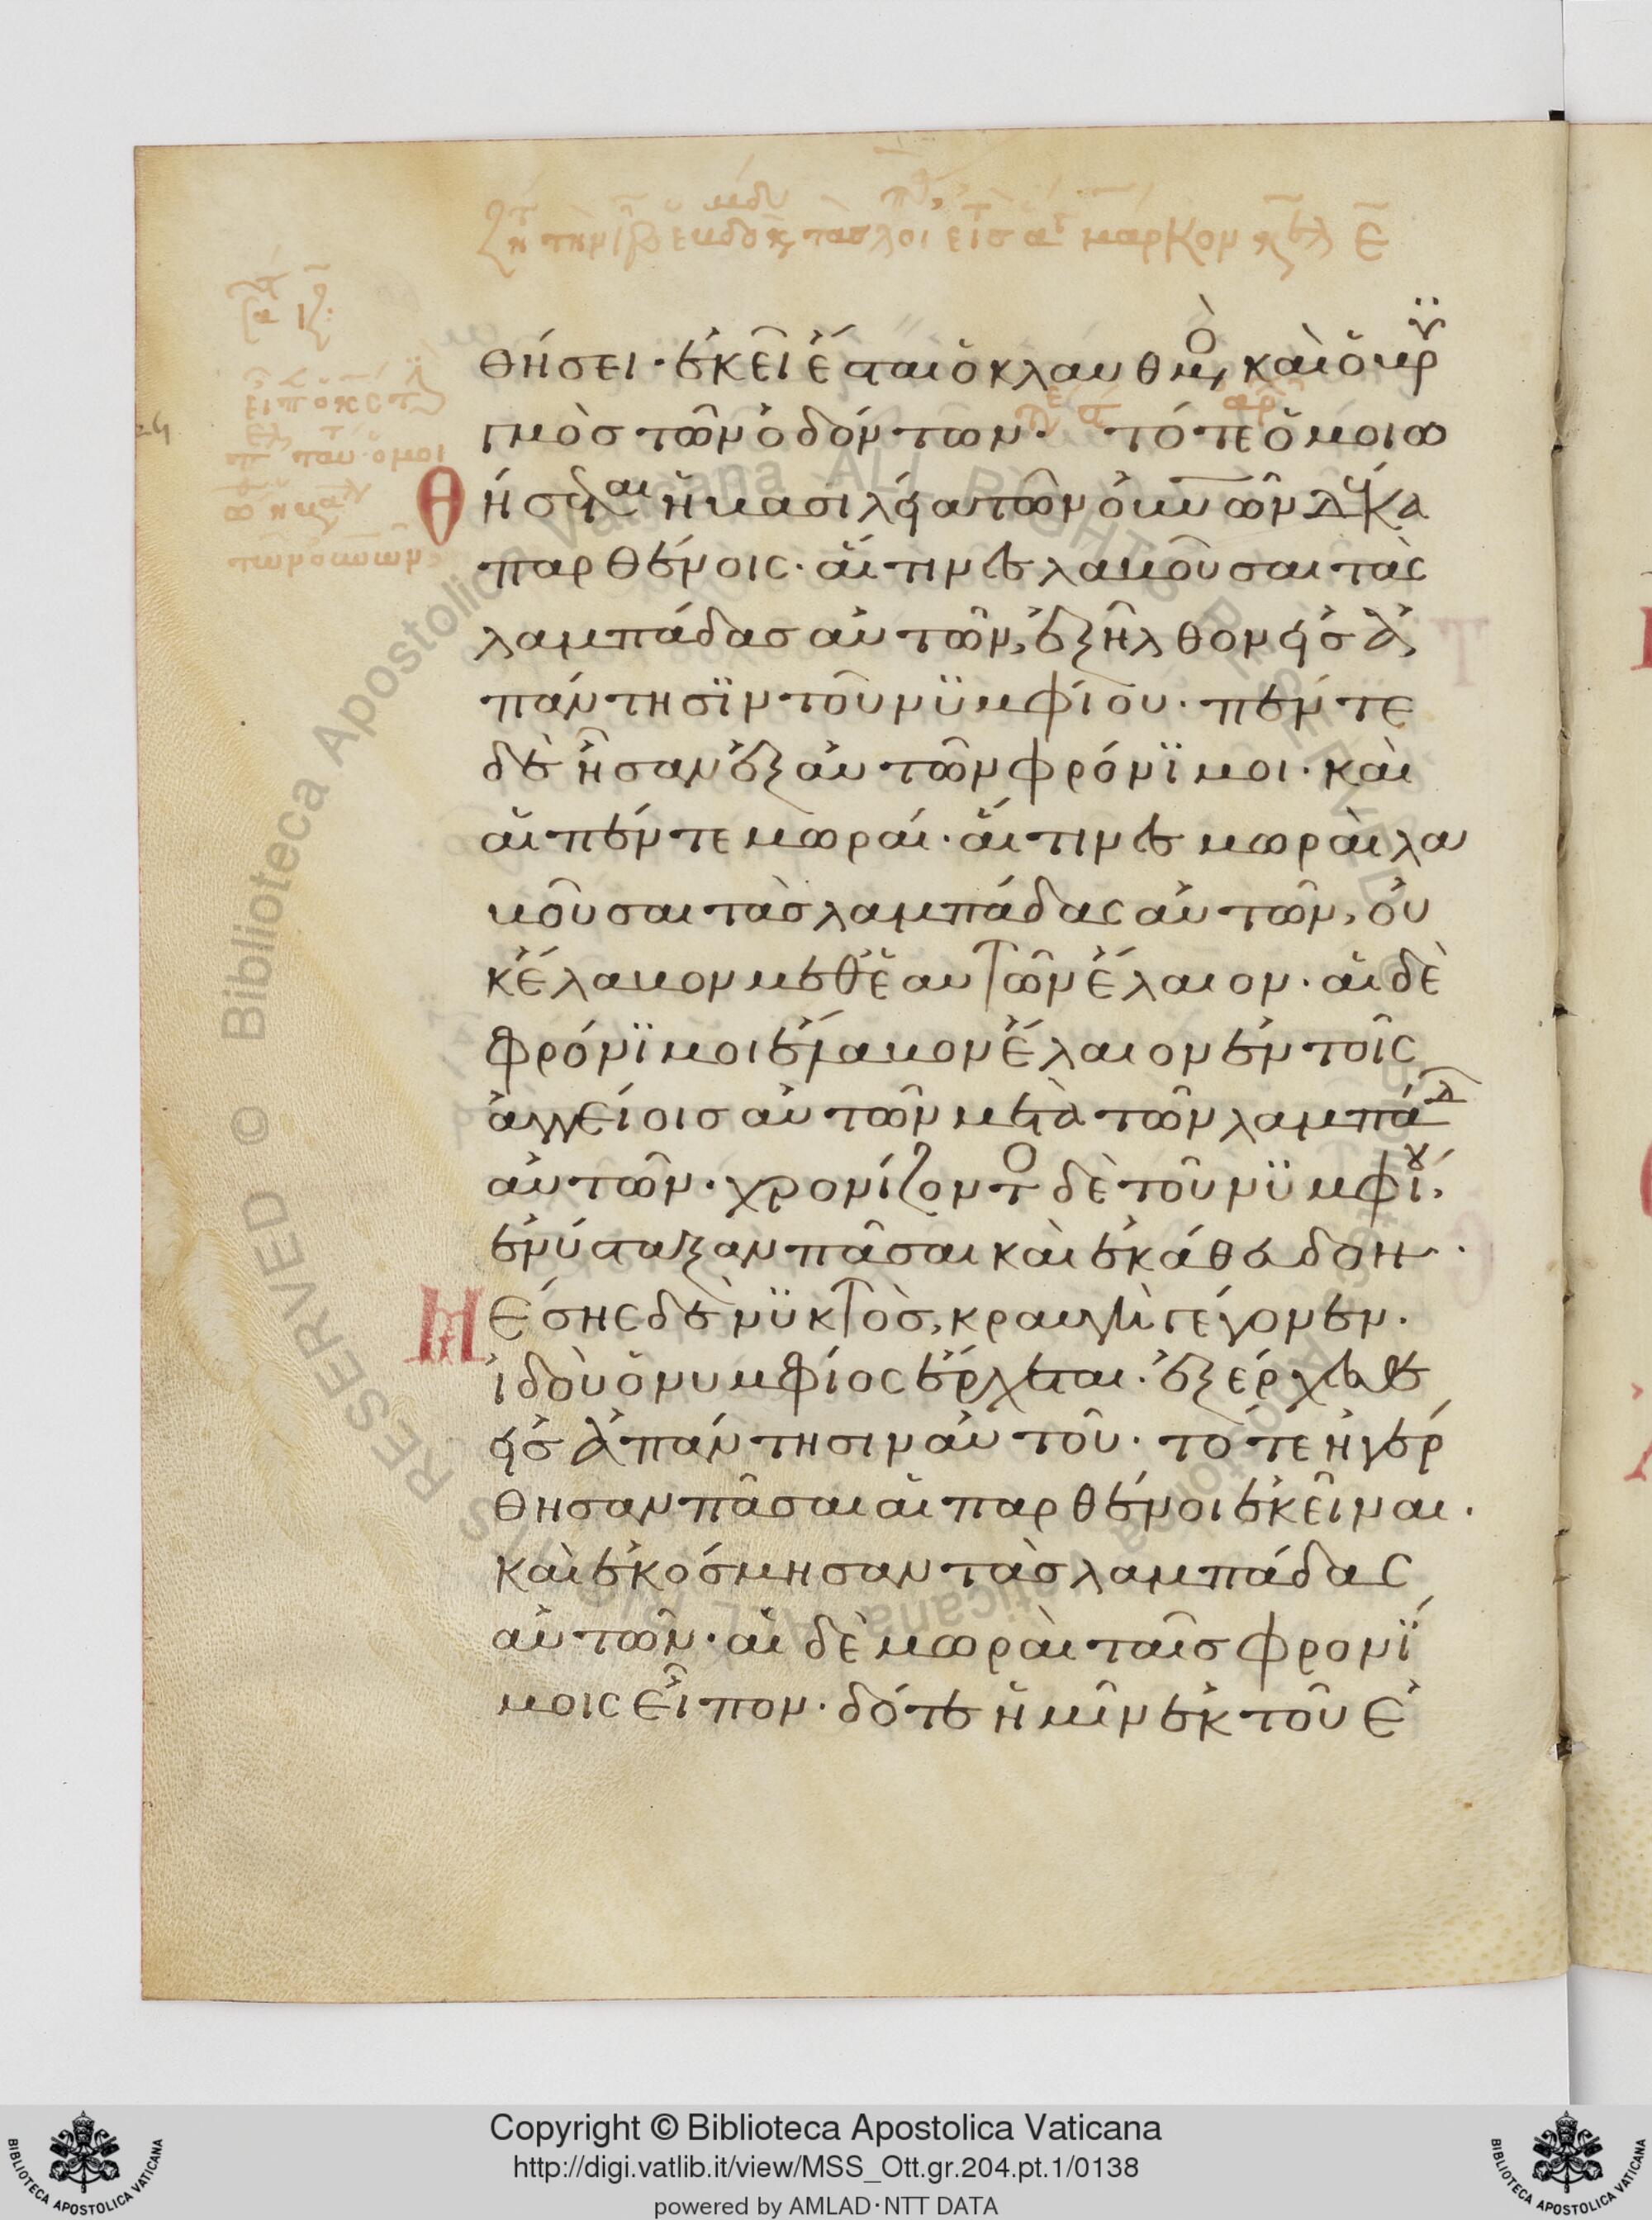 θήσει· ἐκεῖ ἔσται ὁ κλαυθμὸς, καὶ ὁ βρυ
γμὸς τῶν ὀδόντων· τότε ὁμοιω
θήσεται ἡ βασιλεία τῶν οὐνῶν δέκα
παρθένοις· αἵτινες λαβοῦσαι τὰς
λαμπάδας αὐτῶν, ἐξῆλθον εἰς ἀ
πάντησϊν τοῦ νϋμφίου· πέντε
δὲ ἦσαν ἐξ αὐτῶν φρόνϊμοι· καὶ
αἱ πέντε μωραί· αἵτινες μωραὶ λα
βοῦσαι τὰς λαμπάδας αὐτῶν, οὐ
κ ἔλαβον μεθ' ἑαυτῶν ἔλαιον· αἱ δὲ
φρόνϊμοι ἔλαβον ἔλαιον ἐν τοῖς
ἀγγείοις αὐτῶν μετὰ τῶν λαμπάδ
αὐτῶν· χρονίζοντο δὲ τοῦ νϋμφίου,
ἐνύσταξαν πᾶσαι καὶ ἐκάθευδον·
Μέσης δὲ νϋκτὸς, κραυγὴ γέγονεν·
ἰδοὺ ὁ νυμφίος ἔρχεται· ἐξέρχεσθε
εἰς ἀπάντησιν αὐτοῦ· τότε ἠγέρ
θησαν πᾶσαι αἱ παρθένοι ἐκεῖναι·
καὶ ἐκόσμησαν τὰς λαμπάδας
αὐτῶν· αἱ δὲ μωραὶ ταῖς φρονΐ
μοις εἶπον· δότε ἡμῖν ἐκ τοῦ ἐ
Copyright © Biblioteca Apostolica Vaticana
http://digi.vatlib.it/view/MSS_Ott.gr.204.pt.1/0138
powered by AMLAD·NTT DATA